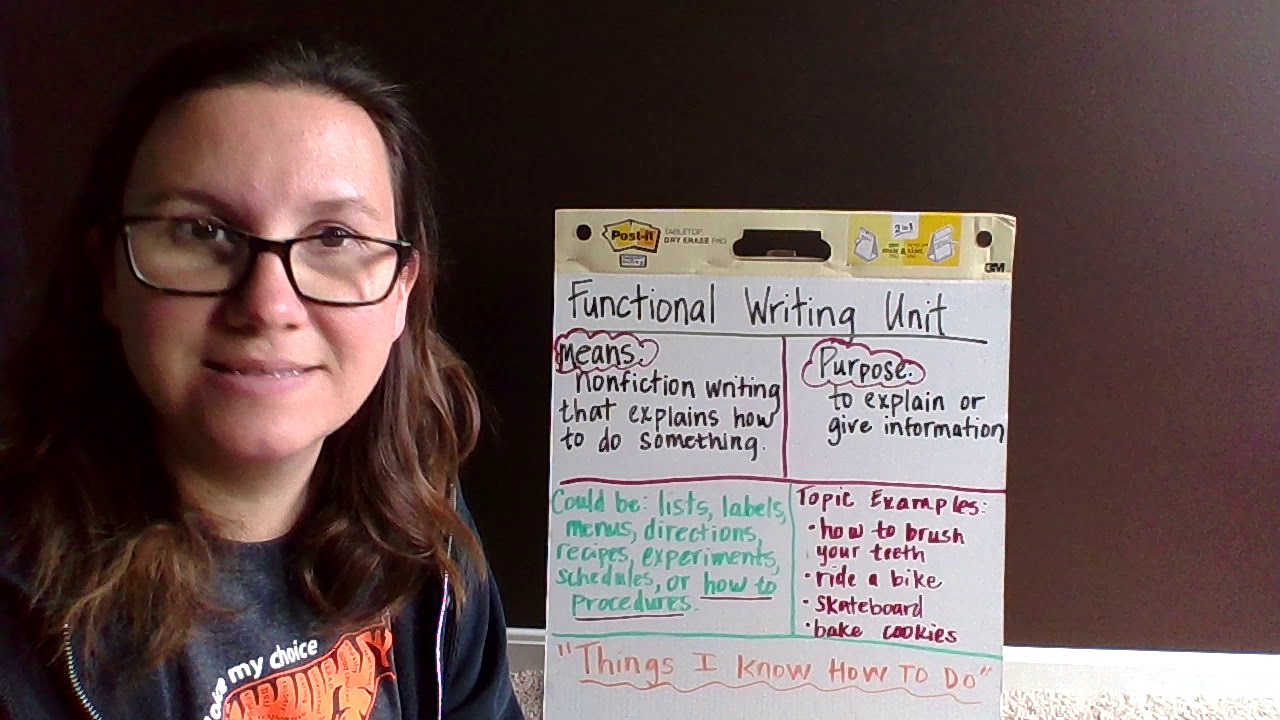 Post-it
TABLETOP
DRY ERASE PAD
2 in 1
3M
Functional Writing Unit
means:
nonfiction writing
that explains how
to do something.
Purpose:
to explain or
give information
Could be: lists, labels,
menus, directions,
recipes, experiments,
schedules, or how to
procedures.
Topic Examples:
• how to brush
your teeth
• ride a bike
• skateboard
• bake cookies
"Things I Know How To Do"
my choice